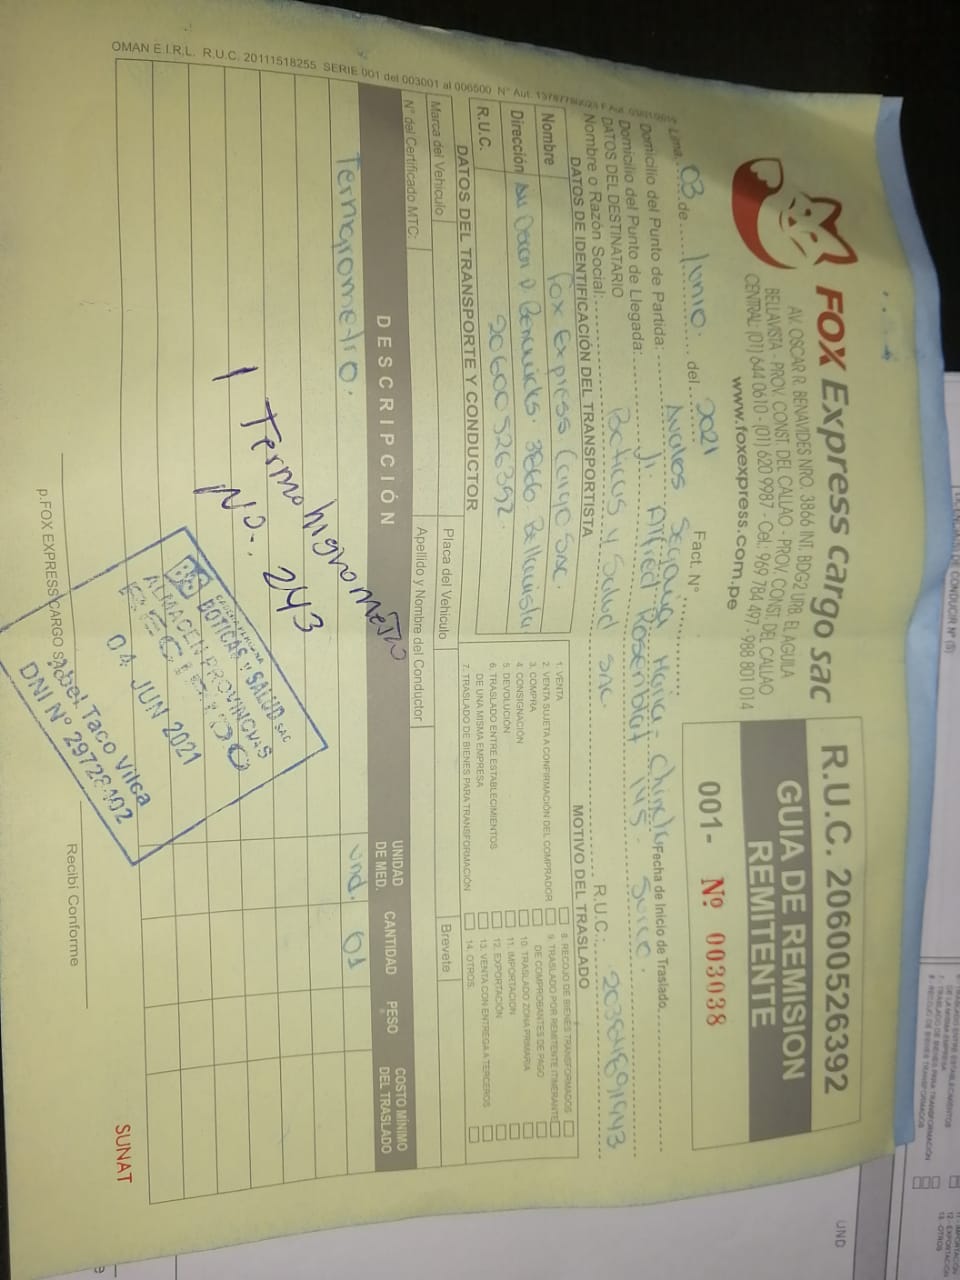 FOX Express cargo sac
AV. OSCAR R. BENAVIDES NRO. 3866 INT. BDG2 URB. EL AGUILA
BELLAVISTA - PROV. CONST. DEL CALLAO - PROV. CONST. DEL CALLAO
CENTRAL: (01) 644 0610 - (01) 620 9987 - Cel.: 969 784 497 - 988 801 014
www.foxexpress.com.pe
R.U.C. 20600526392
GUIA DE REMISION
REMITENTE
001- Nº 003038
Lima, 03 de Junio. del 2021 Fact. N°
Domicilio del Punto de Partida: Fecha de Inicio de Traslado
Domicilio del Punto de Llegada: Jr. Alfred Rosenblat 145 - Surco.
DATOS DEL DESTINATARIO
Nombre o Razón Social: Boticas y Salud snc. R.U.C.: 20384891943
DATOS DE IDENTIFICACIÓN DEL TRANSPORTISTA
Nombre Fox Express Cargo snc.
Dirección 3866 Bellavista
R.U.C. 20600526392.
MOTIVO DEL TRASLADO
1. VENTA
2. VENTA SUJETA A CONFIRMACIÓN DEL COMPRADOR
3. COMPRA
4. CONSIGNACIÓN
5. DEVOLUCIÓN
6. TRASLADO ENTRE ESTABLECIMIENTOS
DE UNA MISMA EMPRESA
7. TRASLADO DE BIENES PARA TRANSFORMACIÓN
8. RECOJO DE BIENES TRANSFORMADOS
9. TRASLADO POR REMITENTE ITINERANTE
DE COMPROBANTES DE PAGO
10. TRASLADO ZONA PRIMARIA
11. IMPORTACION
12. EXPORTACIÓN
13. VENTA CON ENTREGA A TERCEROS
14. OTROS
DATOS DEL TRANSPORTE Y CONDUCTOR
Marca del Vehiculo Placa del Vehiculo
N° del Certificado MTC: Apellido y Nombre del Conductor Brevete
DESCRIPCIÓN UNIDAD DE MED. CANTIDAD PESO COSTO MÍNIMO DEL TRASLADO
Termogrometro. und. 01
1 Termohigrometro
No. 243
BOTICAS Y SALUD SAC
ALMACEN PROVINCIAS
RECIBIDO
04 JUN 2021
Abel Taco Vilca
DNI N° 29728402
p.FOX EXPRESS CARGO SAC
Recibí Conforme
SUNAT
OMAN E.I.R.L. R.U.C. 20111518255 SERIE 001 del 003001 al 006500
UND